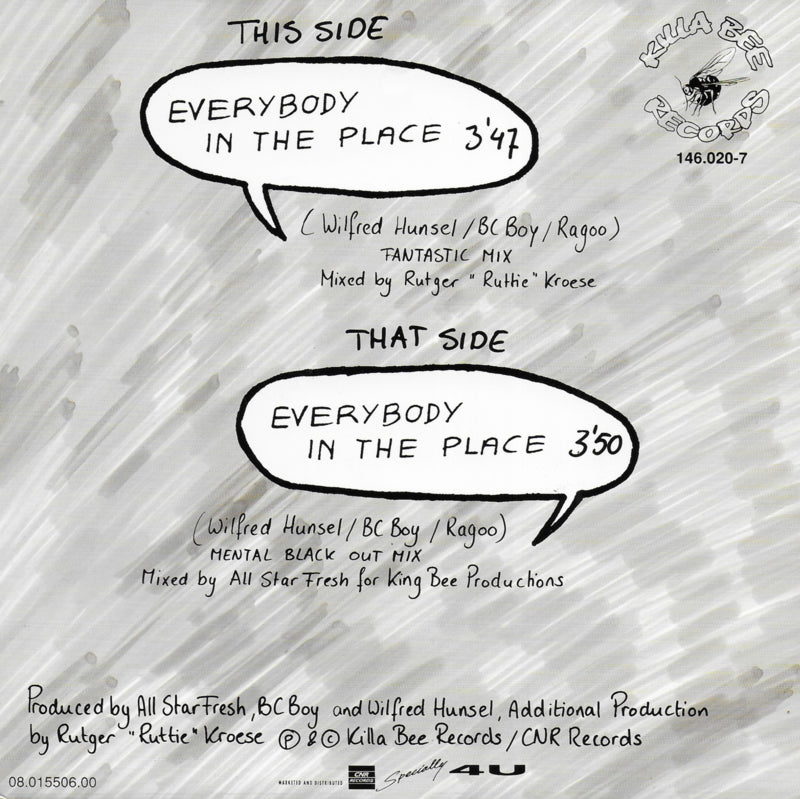 THIS SIDE
KILLA BEE
RECORDS
146.020-7
EVERYBODY
IN THE PLACE 3'47
(Wilfred Hunsel/BC Boy/Ragoo)
FANTASTIC MIX
Mixed by Rutger "Ruthie" Kroese
THAT SIDE
EVERYBODY
IN THE PLACE 3'50
(Wilfred Hunsel/BC Boy/Ragoo)
MENTAL BLACK OUT MIX
Mixed by All Star Fresh for King Bee Productions
Produced by All Star Fresh, BC Boy and Wilfred Hunsel, Additional Production
by Rutger "Ruttie" Kroese ℗ & © Killa Bee Records / CNR Records
08.015506.00
MARKETED AND DISTRIBUTED CNR RECORDS Specially 4U